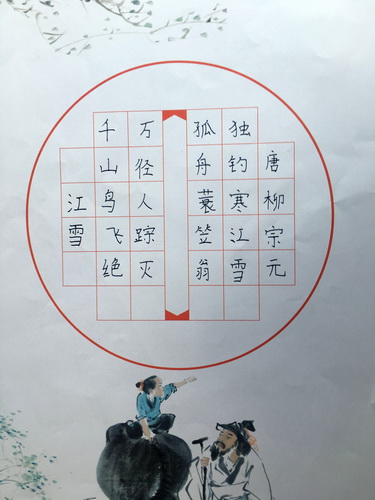 江雪
千山鸟飞绝
万径人踪灭
孤舟蓑笠翁
独钓寒江雪
唐柳宗元